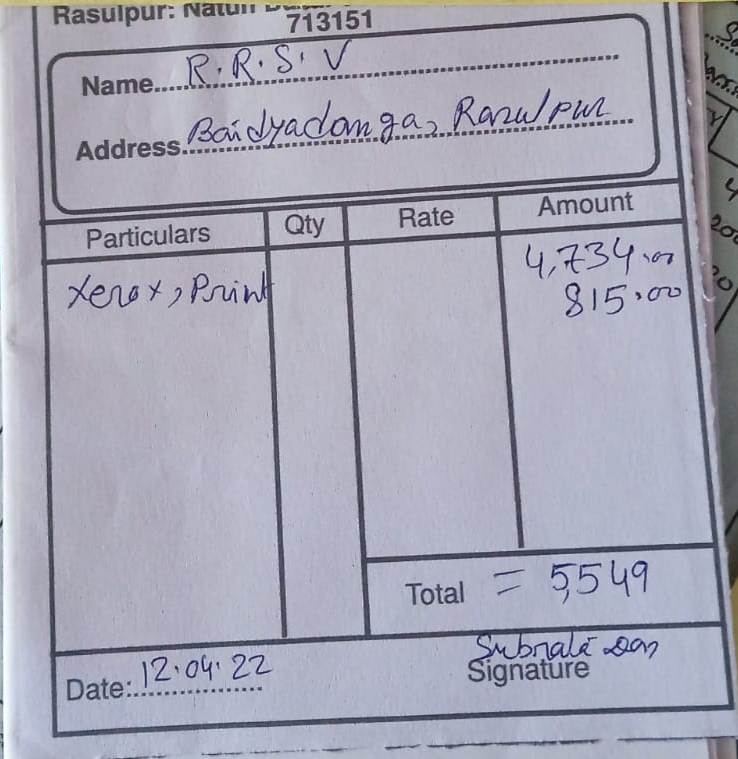 Rasulpur: Natun
713151
Name.....R.R.S.V
Address.Baidyadanga, Rasulpur
Particulars Qty Rate Amount
4,734.00
Xerox, Print 815.00
Total = 5,549
Date: 12.04.22
Signature